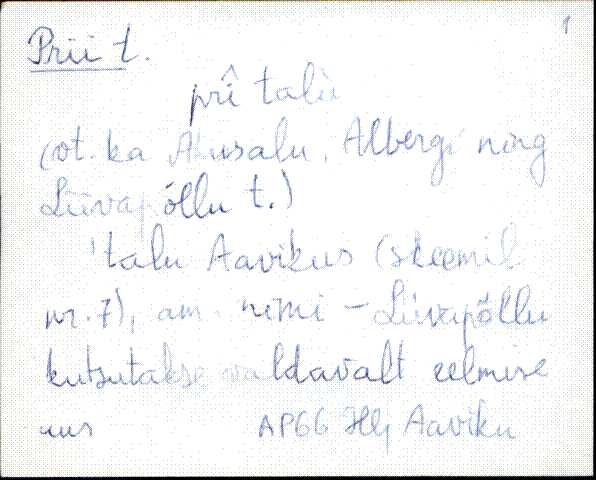 1
Prii t.
prî talù
(vt. ka Ahusalu, Albergi ning
Liivapõllu t.)
talu Aavikus (skeemil
nr. 7), am. nimi – Liivapõllu
kutsutakse valdavalt eelmise
AP66 Hlj Aaviku